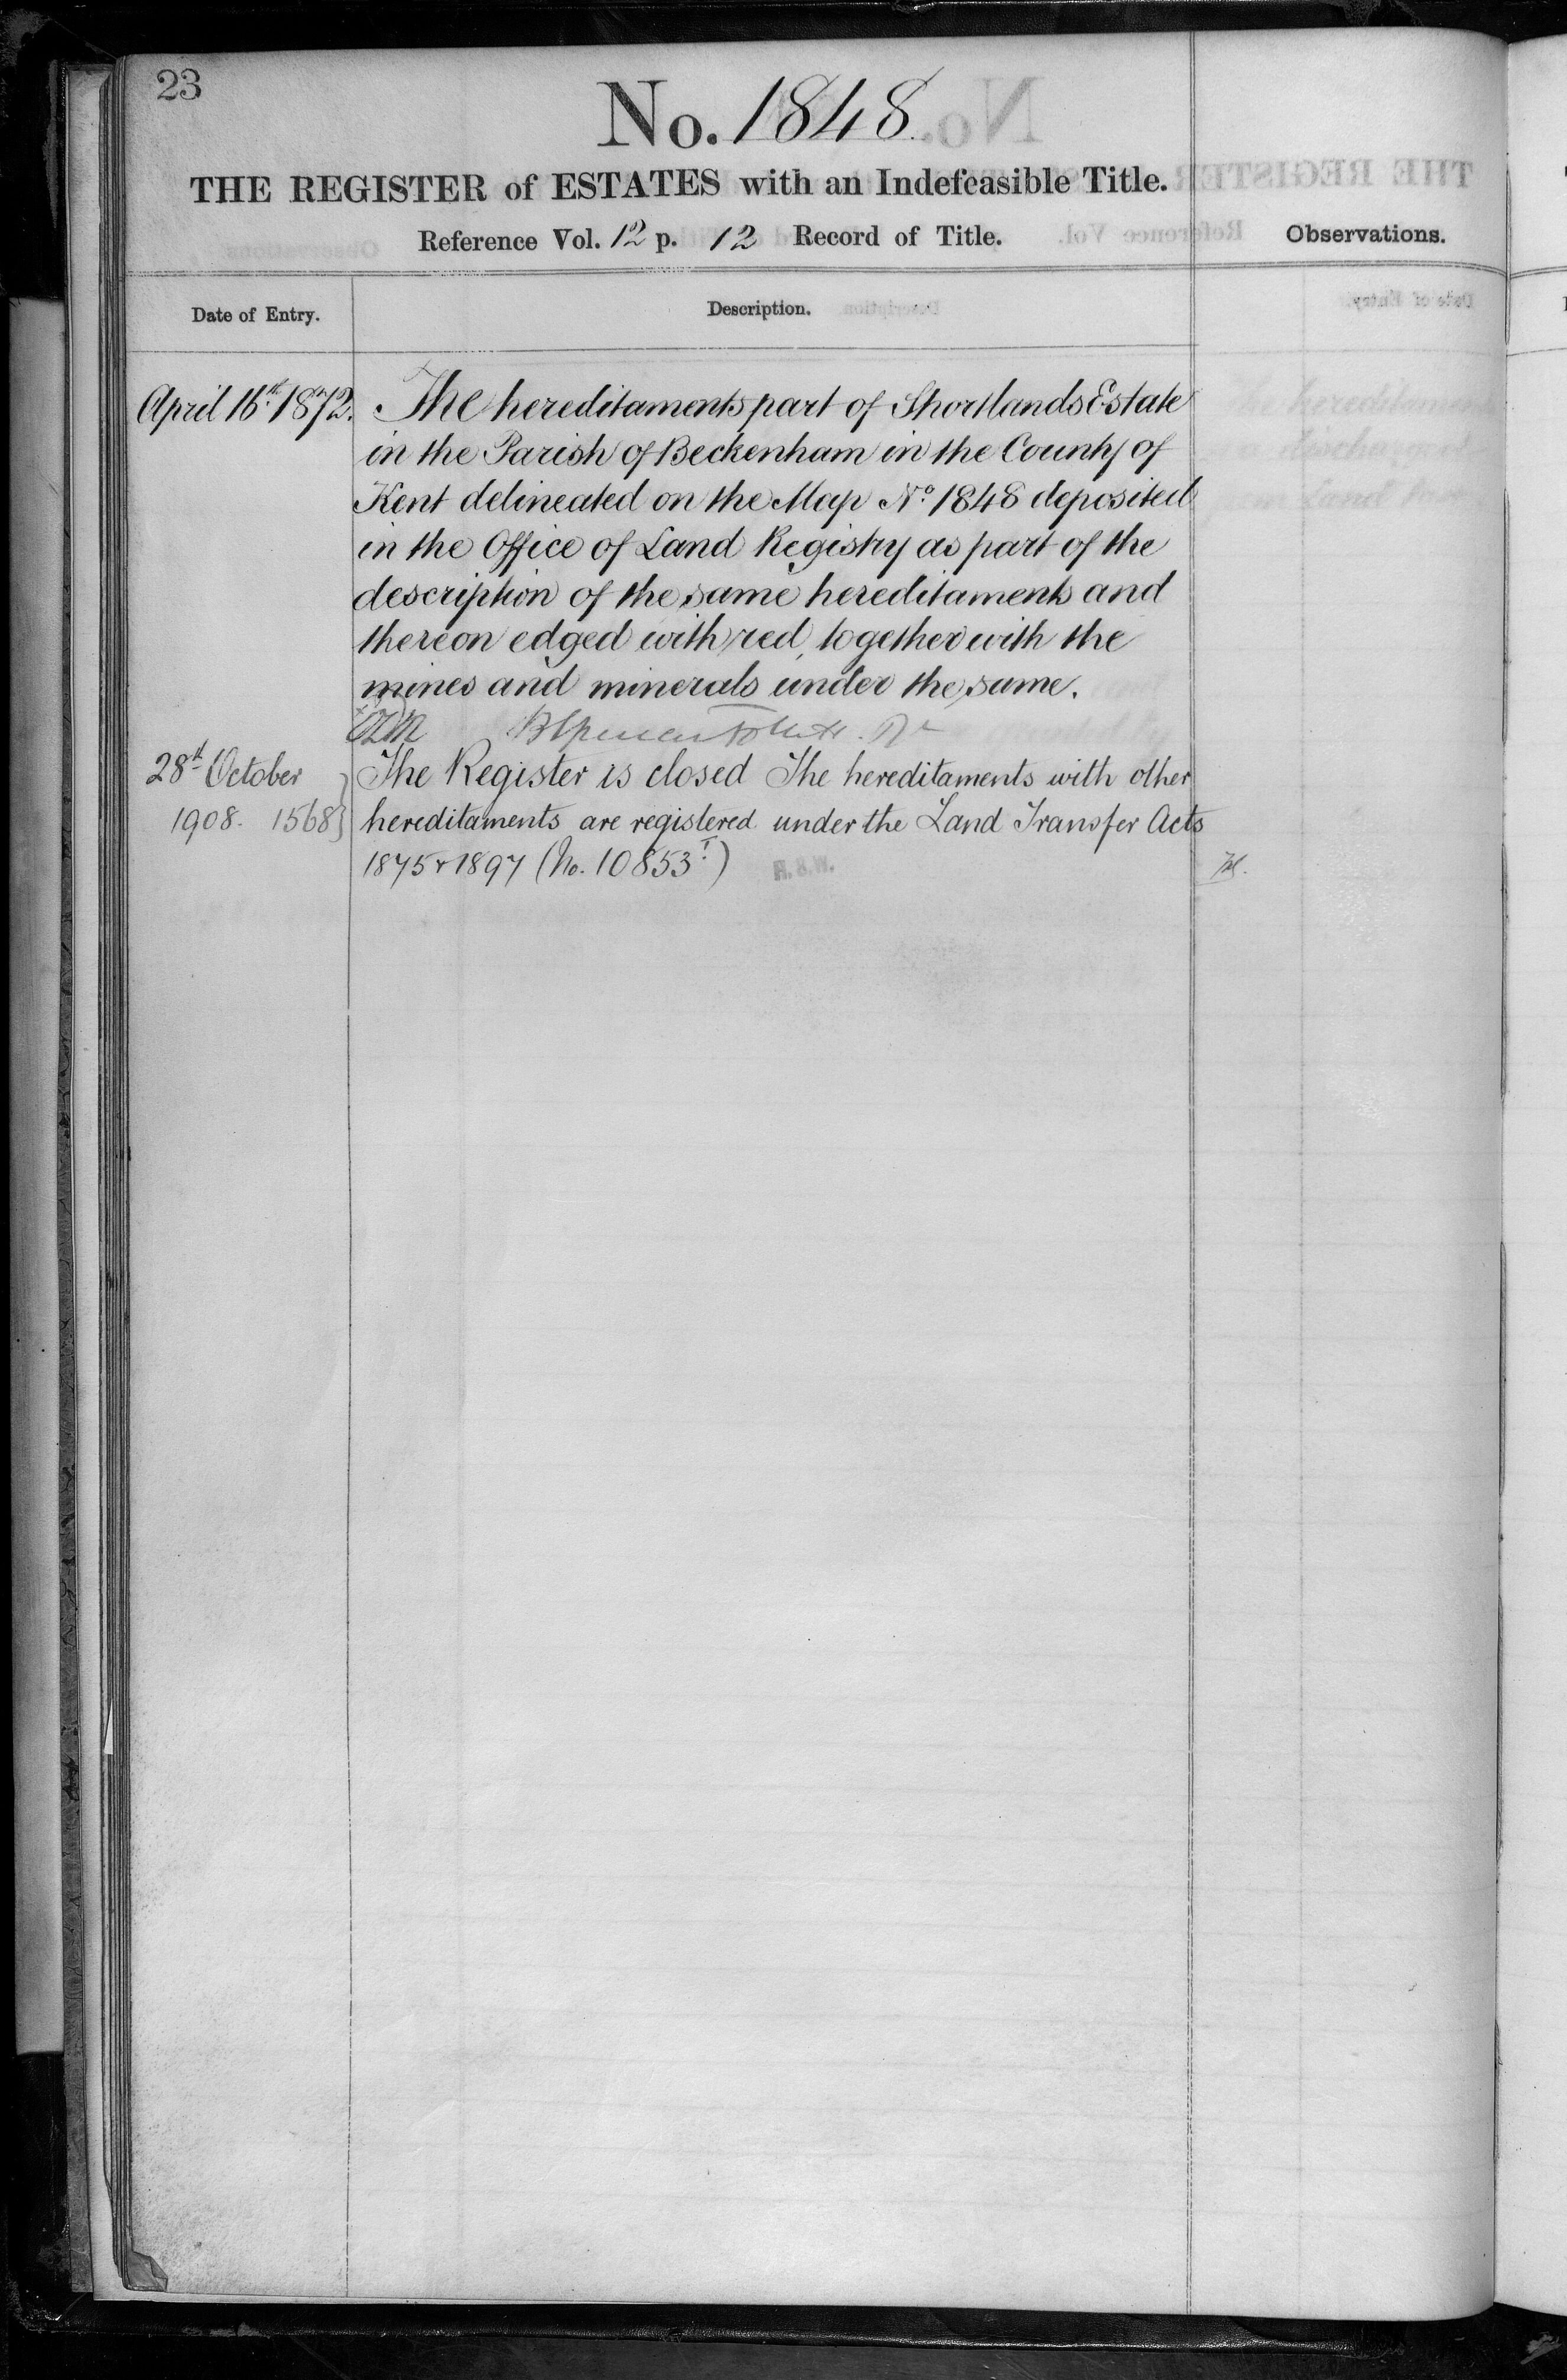 23
No. 1848
THE REGISTER of ESTATES with an Indefeasible Title.
Reference Vol. 12 p. 12 Record of Title.
Observations.
Date of Entry.
Description.
April 16th. 1872.
The hereditaments part of Shortlands Estate
in the Parish of Beckenham in the County of
Kent delineated on the Map No. 1848 deposited
in the Office of Land Registry as part of the
description of the same hereditaments and
thereon edged with red, together with the
mines and minerals under the same.
28th October
1908. 1568}
The Register is closed The hereditaments with other
hereditaments are registered under the Land Transfer Acts
1875 & 1897 (No. 10853I.)
H.S.W.